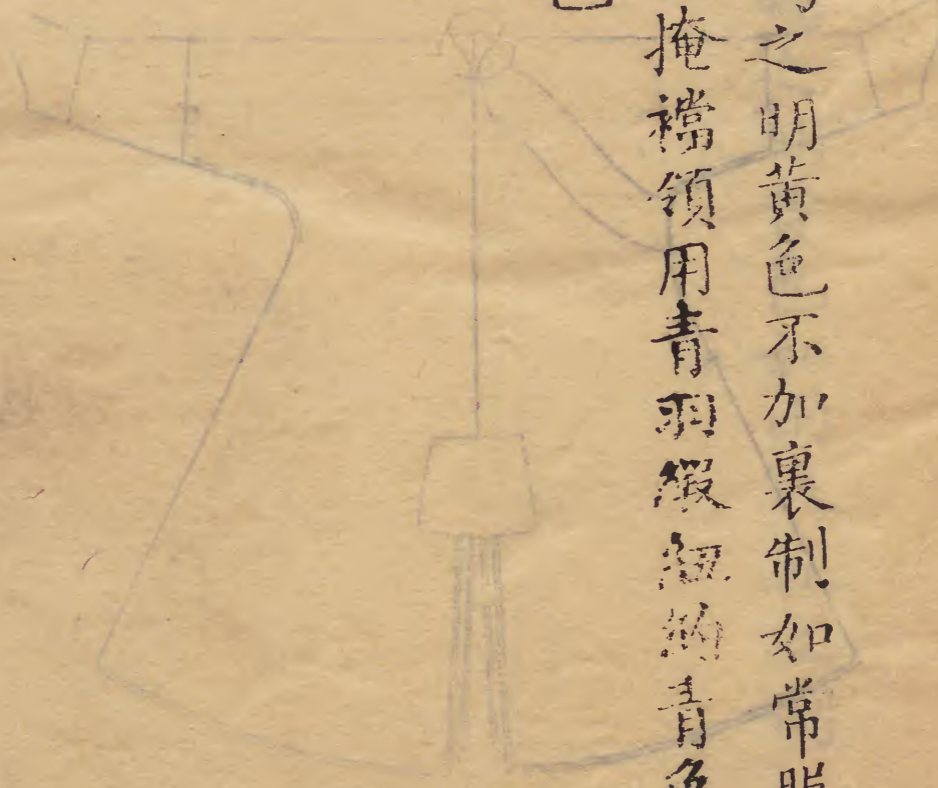 之明黄色不加裏制如常
掩襠領用青羽緞紐約青色